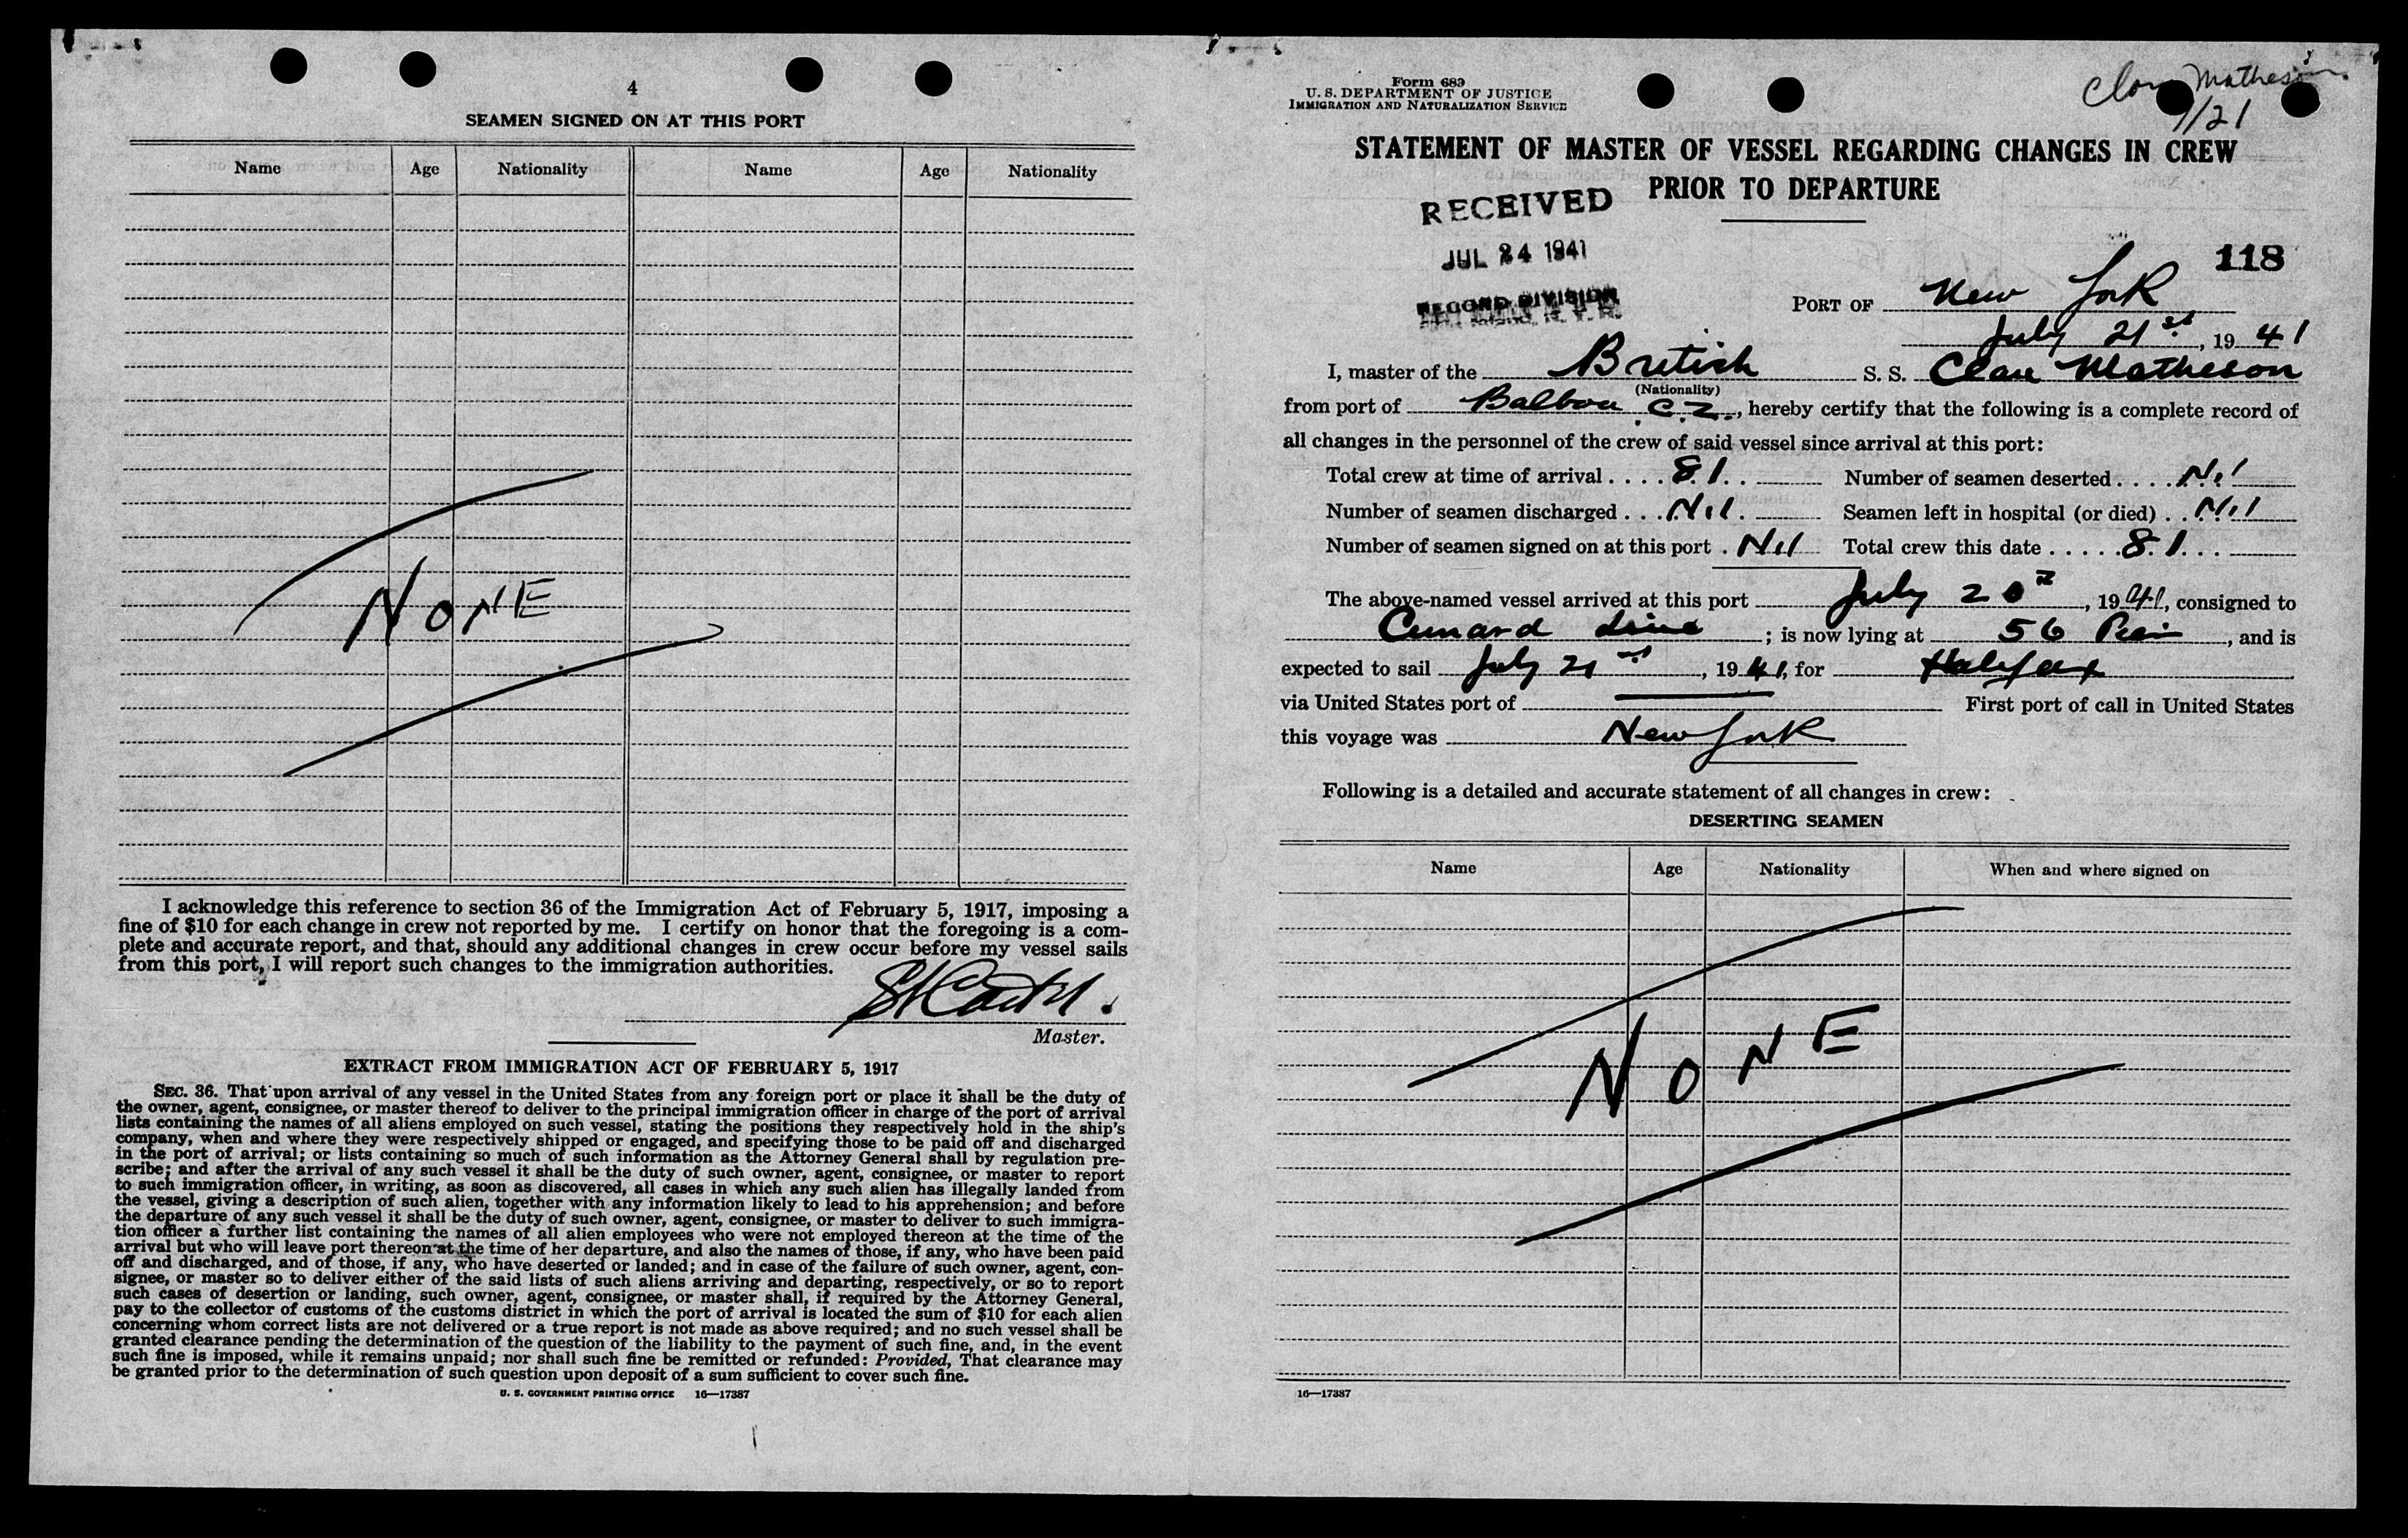 4
SEAMEN SIGNED ON AT THIS PORT
Name Age Nationality Name Age Nationality
NONE
I acknowledge this reference to section 36 of the Immigration Act of February 5, 1917, imposing a
fine of $10 for each change in crew not reported by me. I certify on honor that the foregoing is a com-
plete and accurate report, and that, should any additional changes in crew occur before my vessel sails
from this port, I will report such changes to the immigration authorities.
Master.
EXTRACT FROM IMMIGRATION ACT OF FEBRUARY 5, 1917
SEC. 36. That upon arrival of any vessel in the United States from any foreign port or place it shall be the duty of
the owner, agent, consignee, or master thereof to deliver to the principal immigration officer in charge of the port of arrival
lists containing the names of all aliens employed on such vessel, stating the positions they respectively hold in the ship's
company, when and where they were respectively shipped or engaged, and specifying those to be paid off and discharged
in the port of arrival; or lists containing so much of such information as the Attorney General shall by regulation pre-
scribe; and after the arrival of any such vessel it shall be the duty of such owner, agent, consignee, or master to report
to such immigration officer, in writing, as soon as discovered, all cases in which any such alien has illegally landed from
the vessel, giving a description of such alien, together with any information likely to lead to his apprehension; and before
the departure of any such vessel it shall be the duty of such owner, agent, consignee, or master to deliver to such immigra-
tion officer a further list containing the names of all alien employees who were not employed thereon at the time of the
arrival but who will leave port thereon at the time of her departure, and also the names of those, if any, who have been paid
off and discharged, and of those, if any, who have deserted or landed; and in case of the failure of such owner, agent, con-
signee, or master so to deliver either of the said lists of such aliens arriving and departing, respectively, or so to report
such cases of desertion or landing, such owner, agent, consignee, or master shall, if required by the Attorney General,
pay to the collector of customs of the customs district in which the port of arrival is located the sum of $10 for each alien
concerning whom correct lists are not delivered or a true report is not made as above required; and no such vessel shall be
granted clearance pending the determination of the question of the liability to the payment of such fine, and, in the event
such fine is imposed, while it remains unpaid; nor shall such fine be remitted or refunded: Provided, That clearance may
be granted prior to the determination of such question upon deposit of a sum sufficient to cover such fine.
U. S. GOVERNMENT PRINTING OFFICE 16—17387
Form 689
U. S. DEPARTMENT OF JUSTICE
IMMIGRATION AND NATURALIZATION SERVICE
Matheson
/21
STATEMENT OF MASTER OF VESSEL REGARDING CHANGES IN CREW
PRIOR TO DEPARTURE
RECEIVED
JUL 24 1941
RECORD DIVISION
118
PORT OF New York
July 21st, 1941
I, master of the British S. S. Clan Matheson
(Nationality)
from port of Balboa C.Z., hereby certify that the following is a complete record of
all changes in the personnel of the crew of said vessel since arrival at this port:
Total crew at time of arrival . . . . 81 . . Number of seamen deserted . . . . Nil
Number of seamen discharged . . . Nil . Seamen left in hospital (or died) . . Nil
Number of seamen signed on at this port . Nil Total crew this date . . . . . 81 . . .
The above-named vessel arrived at this port July 20th, 1941, consigned to
Cunard Line ; is now lying at 56 Pier, and is
expected to sail July 21st, 1941, for Halifax
via United States port of ——— First port of call in United States
this voyage was New York
Following is a detailed and accurate statement of all changes in crew:
DESERTING SEAMEN
Name Age Nationality When and where signed on
NONE
16—17387